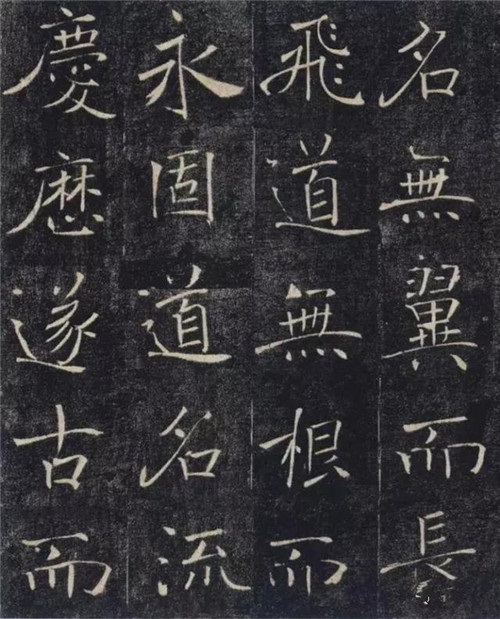 名無翼而長
飛道無根而
永固道名流
慶歴遂古而